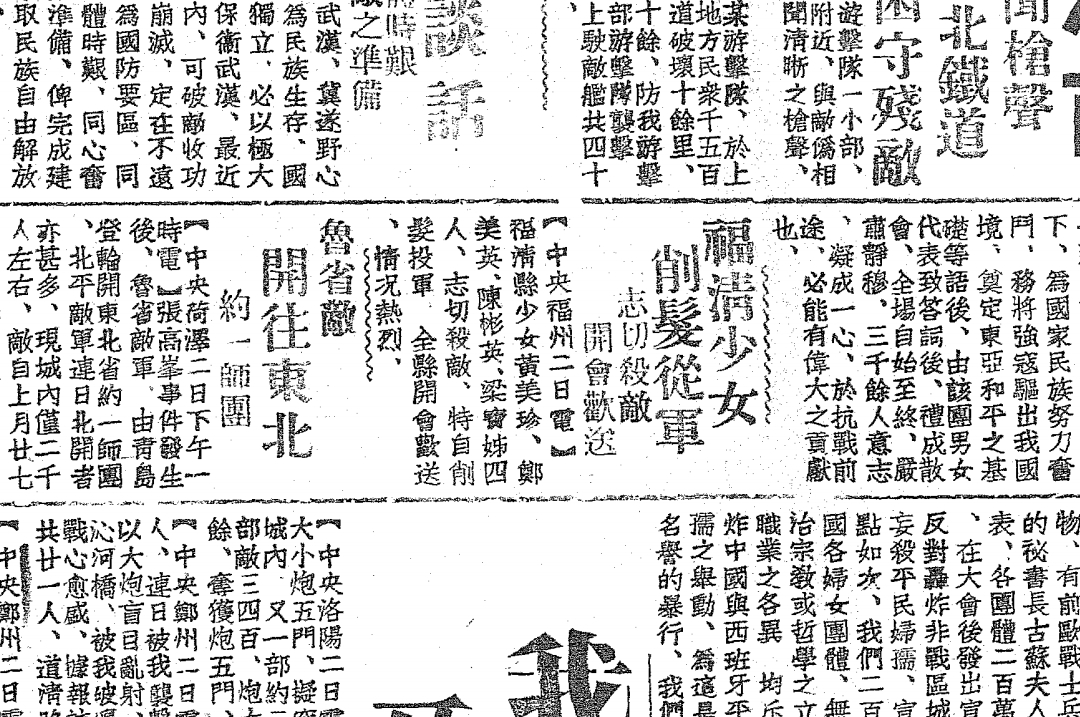 聞槍聲
北鐵道
困守殘敵
游擊隊一小部、
附近、與敵僞相
聞清晰之槍聲、
某游擊隊、於上
地方民衆千五百
道破壞十餘里、
十餘、防我游擊
部游擊隊襲擊
上駛敵艦共四十
談話
時艱
敵之準備
武漢、冀遂野心
爲民族生存、國
獨立、必以極大
保衛武漢、最近
內、可破敵收功
崩滅、定在不遠
爲國防要區、同
體時艱、同心奮
準備、俾完成建
取民族自由解放
下、爲國家民族努力奮
鬥、務將強寇驅出我國
境、奠定東亞和平之基
礎等語後、由該團男女
代表致答詞後、禮成散
會、全場自始至終、嚴
肅靜穆、三千餘人意志
、凝成一心、於抗戰前
途、必能有偉大之貢獻
也、
福淸少女
削髮從軍
志切殺敵
開會歡送
【中央福州二日電】
福淸縣少女黃美珍、鄭
美英、陳彬英、梁寶姊四
人、志切殺敵、特自削
髮投軍、全縣開會歡送
、情况熱烈、
魯省敵
開往東北
約一師團
【中央荷澤二日下午一
時電】張高峯事件發生
後、魯省敵軍、由靑島
登輪開東北省約一師團
、北平敵軍連日北開者
亦甚多、現城內僅二千
人左右、敵自上月廿七
物、有前歐戰士兵
的秘書長古蘇夫人
表、各團體二百萬
、在大會後發出宣
反對轟炸非戰區城
妄殺平民婦孺、宣
點如次、我們二百
國各婦女團體、無
治宗敎或哲學之立
職業之各異、均斥
炸中國與西班牙平
孺之舉動、爲這是
名譽的暴行、我們
我
【中央洛陽二日電
大小炮五門、擬突
城內、又一部約三
部敵三四百、炮
餘、奪獲炮五門、
【中央鄭州二日電
人、連日被我襲擊
以大炮盲目亂射、
沁河橋、被我破壞
戰心愈感、據報
共廿一人、道淸路
【中央鄭州二日電